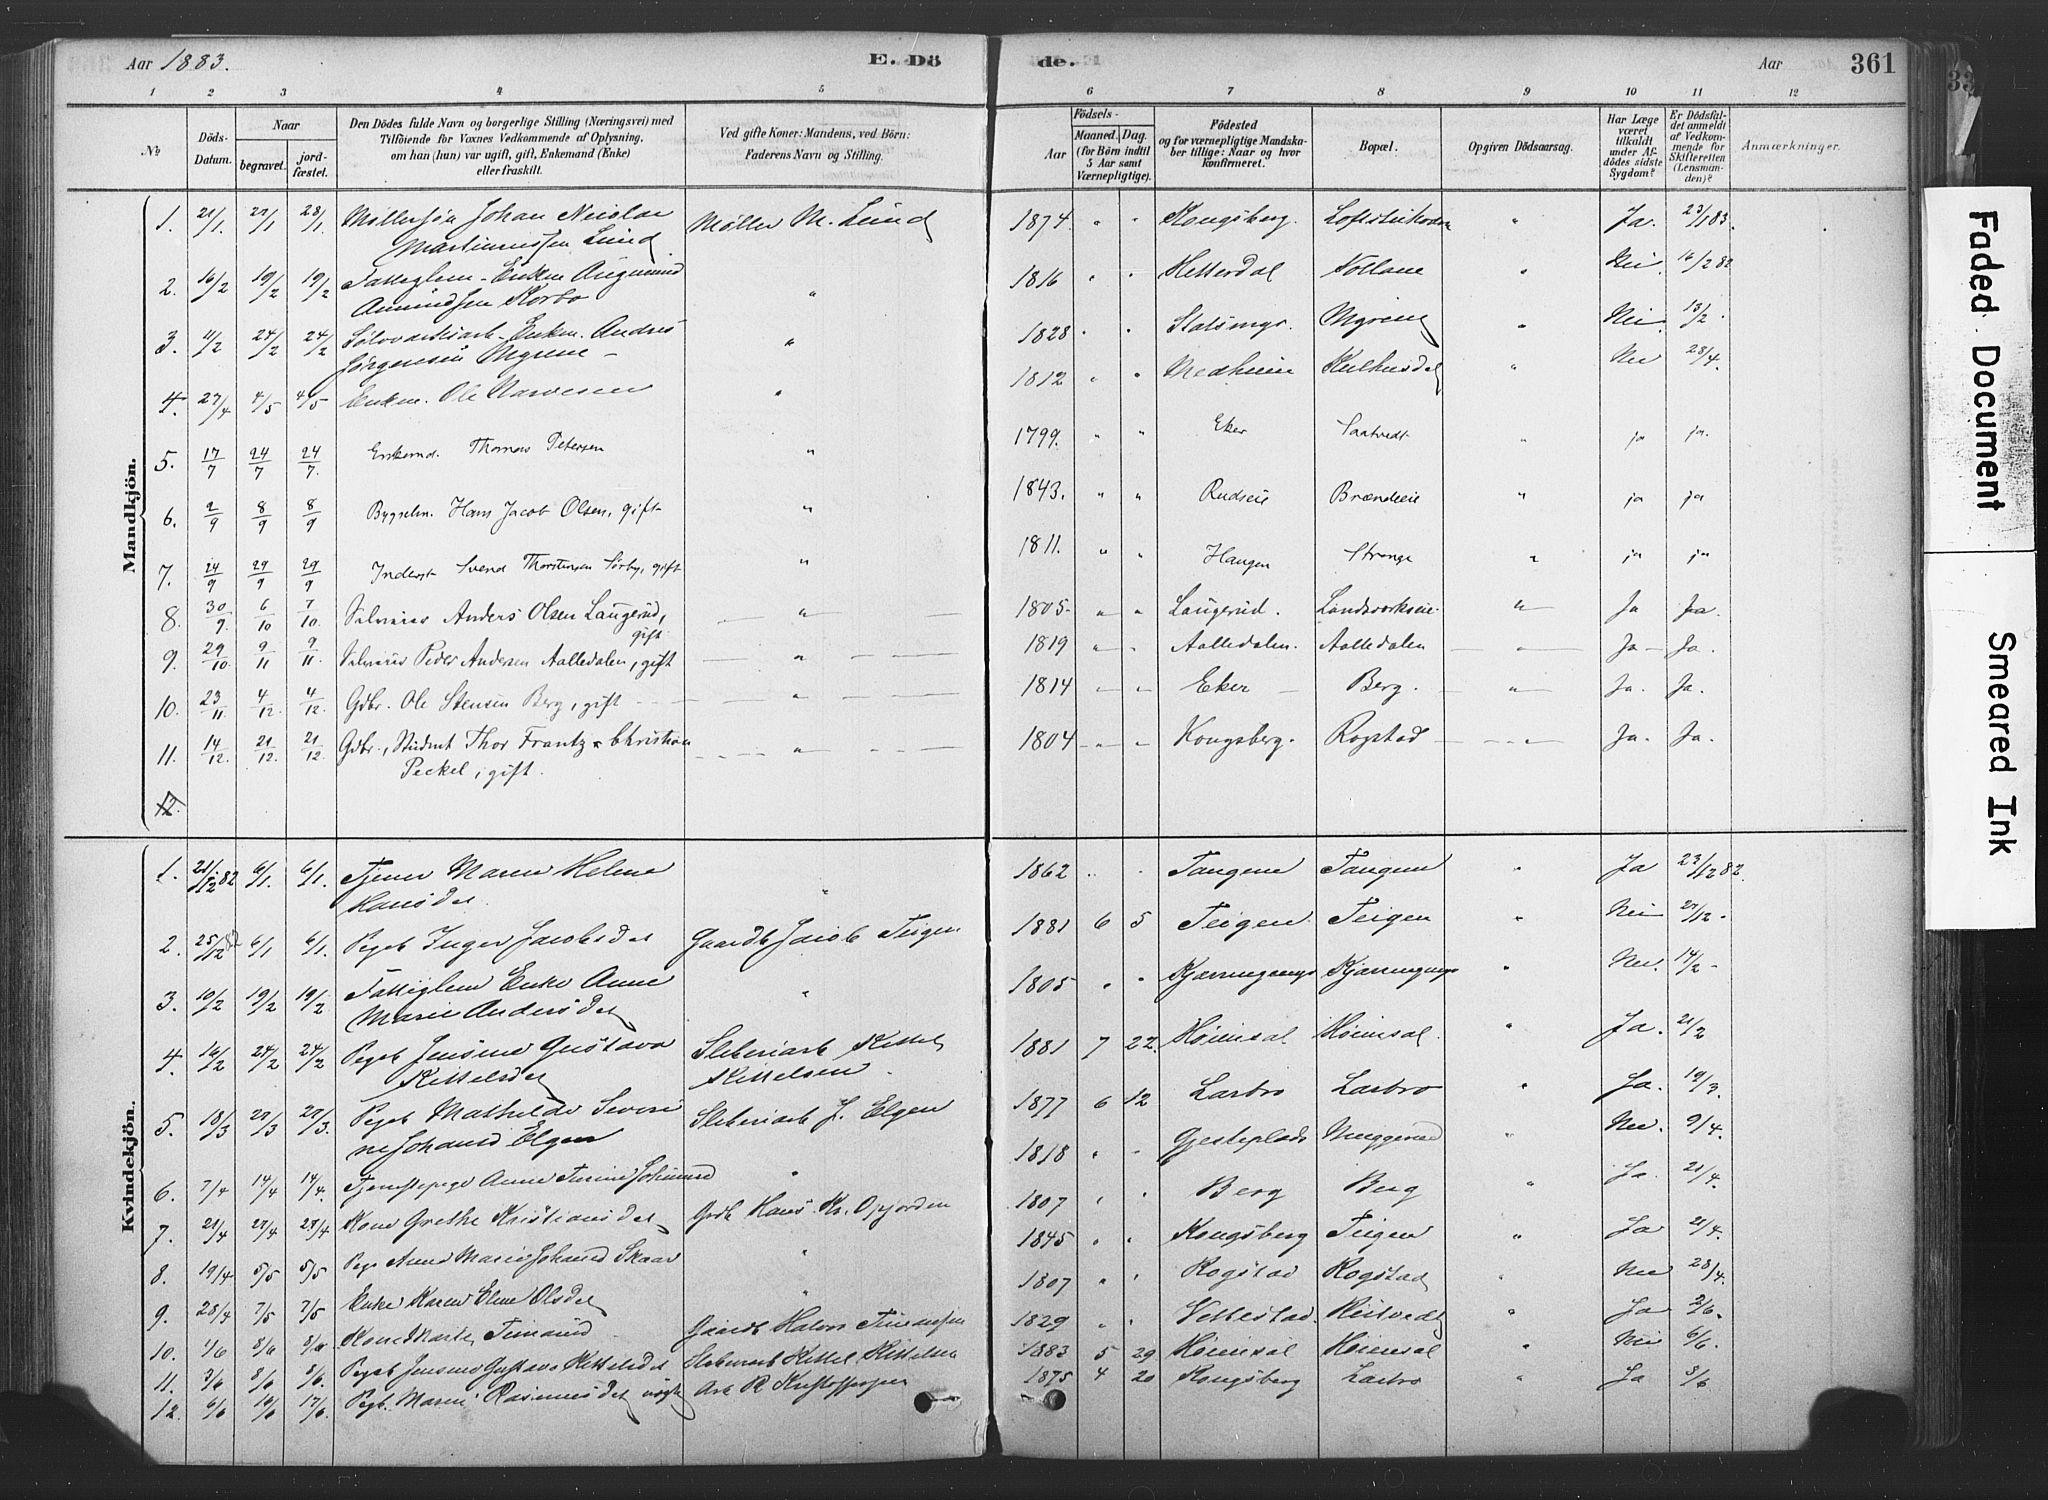 Aar 1883.
E. Dö
de.
Aar
361
1 2 3 4 5 6 7 8 9 10 11 12
№
Döds-Datum.
Naar
begravet.
jord-fæstet.
Den Dödes fulde Navn og borgerlige Stilling (Næringsvei) med
Tilföiende for Voxnes Vedkommende af Oplysning,
om han (hun) var ugift, gift, Enkemand (Enke)
eller fraskilt.
Ved gifte Koner: Mandens, ved Börn:
Faderens Navn og Stilling.
Födsels-
Aar
Maaned. Dag.
(for Börn indtil
5 Aar samt
Værnepligtige).
Födested
og for værnepligtige Mandska-
ber tillige: Naar og hvor
konfirmeret.
Bopæl.
Opgiven Dödsaarsag.
Har Læge
været
tilkaldt
under Af-
dödes sidste
Sygdom?
Er Dödsfal-
det anmeldt
af Vedkom-
mende for
Skifteretten
(Lensman-
den)?
Anmærkninger.
Mandkjön.
1. 21/1. 27/1 28/1. Möllersön Johan Nicolai Møller M. Lund 1874 " " Kongsberg. " Ja. 23/1 83.
Martinussen Lund
2. 16/2 19/2 19/2 Fattiglem - Enkm " 1816 " " Hitterdal " Nei. 16/2 82
Amundsen Korbo
3. 11/2 24/2 24/2 Sølvværksarb. Enkm. Andreas " 1828 " " Myrene " Nei. 13/2.
Jörgensen Myrene
4. 27/4 4/5 4/5 Enkm. Ole " 1812 " " " Nei 28/4.
5. 17/7 24/7 24/7. Enkemd. Thomas Petersen " 1799. " " Eker Saatvedt " ja ja.
6. 2/9 8/9 8/9 Bygselm. Hans Jacob Olsen, gift " 1843. " " Rudseie Brændeie " ja ja
7. 24/9 29/9 29/9 Inderst Svend Thorstensen Sørby, gift " 1811. " " Haugen Strange " ja ja
8. 30/9. 6/10 7/10. Selveier Anders Olsen Laugerud, " 1805. " " Laugerud. Landsverkseie. " Ja Ja.
gift
9. 29/10. 9/11 9/11. Selveier Peder Andersen Aalledalen, gift " 1819 " " Aalledalen. Aalledalen " Ja Ja.
10. 23/11. 4/12. 4/12. Gdbr. Ole Stensen Berg, gift " 1814 " " Eker Berg. " Ja. Ja.
11. 14/12. 21/12. 21/12 Gdbr., Student Thor Frantz Christian " 1804 " " Kongsberg. Rogstad " Ja. Ja.
Peckel, gift.
12.
Kvindekjön.
1. 21/12 82 6/1. 6/1. Tjener Maren Helene " 1862 " " Tangene Tangene " Ja 23/12 82.
Hansdet.
2. 25/12 82 6/1 6/1. Pigeb Inger Jacobsdet Gaardb Jacob Teigen 1881 6 5 Teigen Teigen " Nei 27/12.
3. 10/2 19/2 19/2 Fattiglem Enke Anne " 1805 " " " Nei. 14/2
Marie Andersdet
4. 16/2 24/2 24/2 Pigeb Jensine Gustava Sliberiarb Kittel 1881 7 22. Høiensal Høiensal. " Ja. 21/2
Kittelsdet Kittelsen
5. 18/3 27/3 27/3. Pigeb Mathilde Severi Sliberiarb J. Elgen 1877 6 12 Lasbro Lasbro " Ja. 19/3.
ne Johansd Elgen
6. 7/4 14/4 14/4. Tjenestepige Anne " 1818 " " Gjesteplads " Nei. 9/4.
7. 21/4 27/4 27/4 Kone Grethe Kristiansdet Grdb Hans Kr. Opjorden 1807 " " Berg Berg " Ja. 21/4.
8. 19/4 5/5 5/5 Pige Anne Marie Johansd Skaar " 1845 " " Kongsberg Teigen " Ja 21/4.
9. 28/4 7/5 7/5 Enke Karen Eline Olsdet " 1807 " " Rogstad Rogstad " Nei 28/4.
10. 1/6 8/6 8/6 Kone Marte Gaardb Halvor 1829 " " Vettestad " Ja 2/6.
11. 3/6 8/6 8/6. Pigeb Jensine Gustava Kittelsdet Sliberiarb Kittel Kittelsen 1883 5 29 Høiensal Høiensal " Nei 6/6.
12. 6/6 10/6 17/6. Pigb. Marie Rasmusdet Arb R Kristoffersen 1875 4 20 Kongsberg Lasbro " Ja 8/6
Faded Document
Smeared Ink